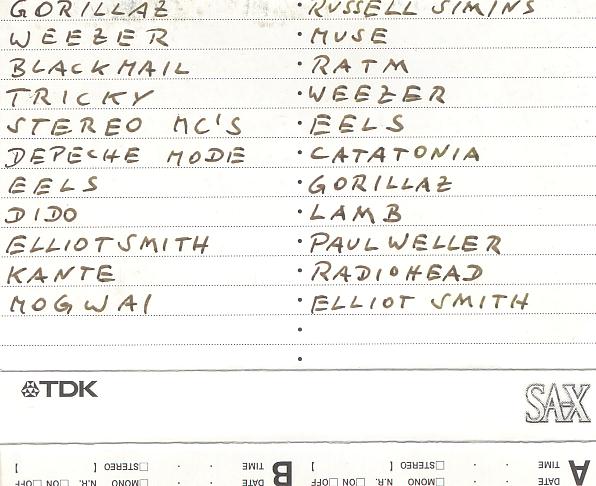 GORILLAZ
WEEZER
BLACKMAIL
TRICKY
STEREO MC'S
DEPECHE MODE
EELS
DIDO
ELLIOTSMITH
KANTE
MOGWAI
• RUSSELL SIMINS
• MUSE
• RATM
• WEEZER
• EELS
• CATATONIA
• GORILLAZ
• LAMB
• PAUL WELLER
• RADIOHEAD
• ELLIOT SMITH
•
•
TDK
SA-X
A DATE TIME . . N.R. □ON □OFF □MONO □STEREO [ ]
B DATE TIME . . N.R. □ON □OFF □MONO □STEREO [ ]